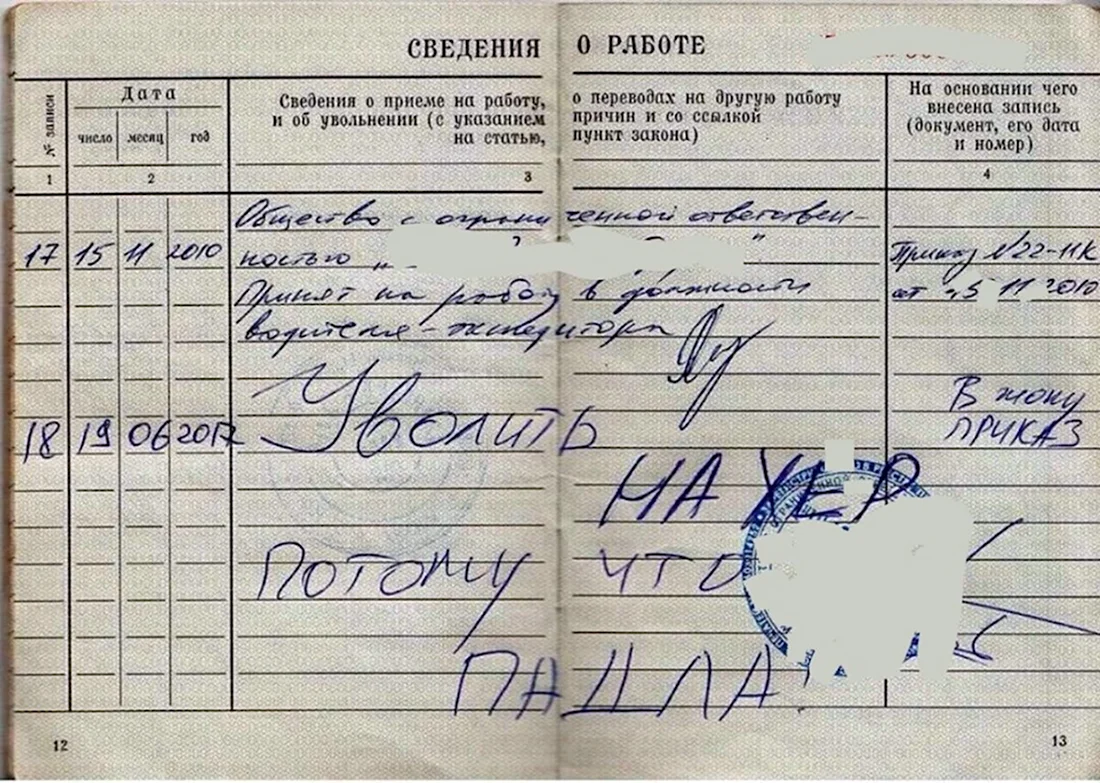 СВЕДЕНИЯ О РАБОТЕ
№ записи
Дата
число месяц год
Сведения о приеме на работу, о переводах на другую работу
и об увольнении (с указанием причин и со ссылкой
на статью, пункт закона)
На основании чего
внесена запись
(документ, его дата
и номер)
1 2 3 4
Общество с ограниченной ответствен-
17 15 11 2010 ностью „ " Приказ №22-11К
Принят на работу в должности от 15 11 2010
водителя-экспедитора
В жопу
18 19 06 2017 Уволить ПРИКАЗ
НА ХЕР
Потому что
ПАДЛА
12 13